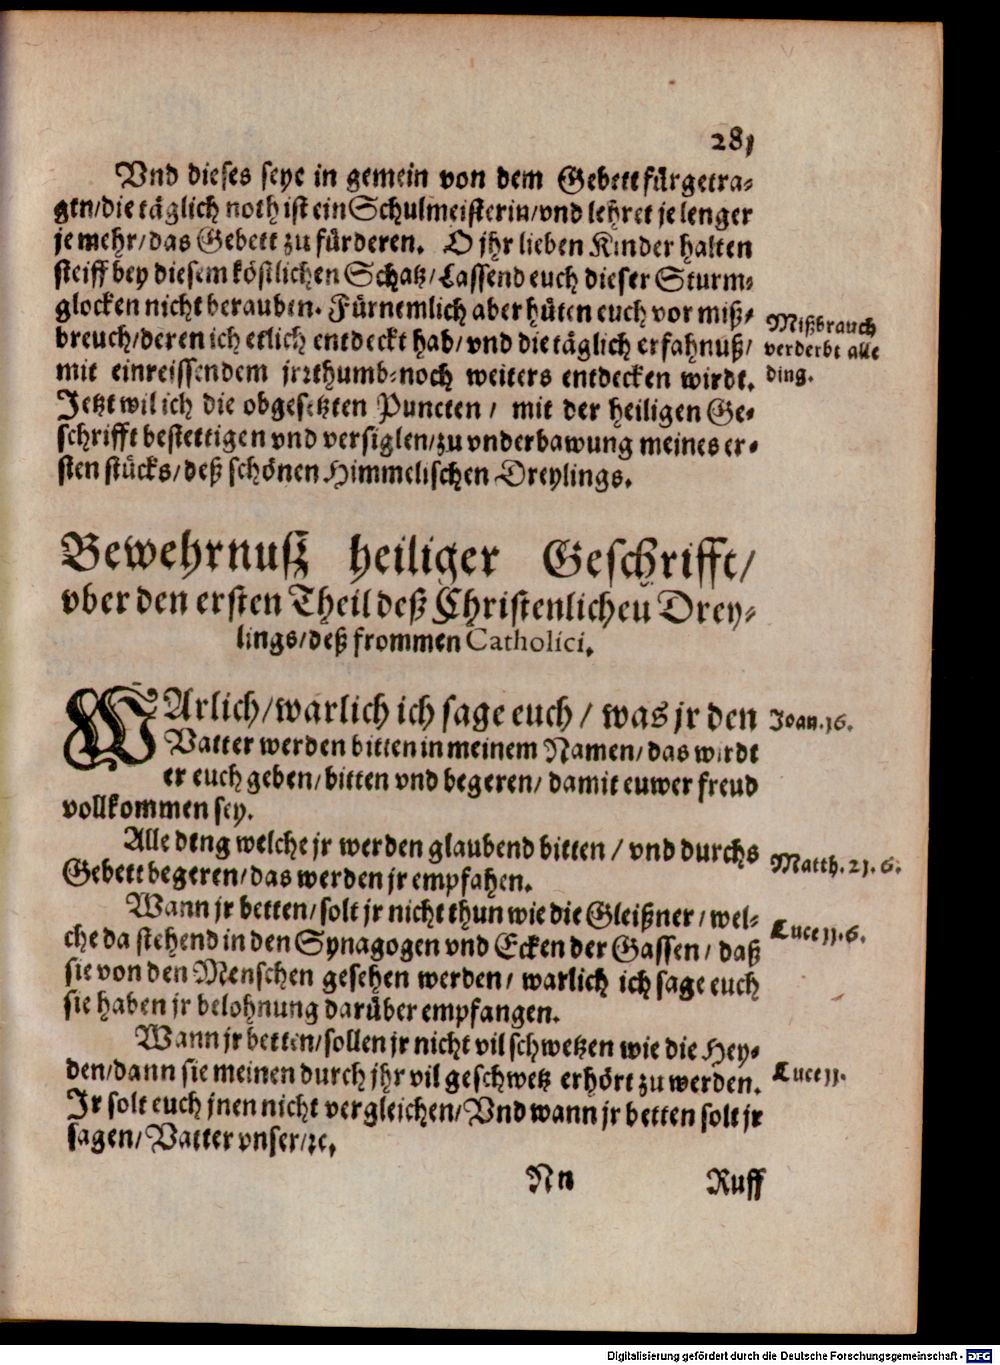 281
Vnd dieses seye in gemein von dem Gebett fürgetra-
gen/die täglich noth ist ein Schulmeisterin/vnd lehret je lenger
je mehr/das Gebett zu fürderen. O jhr lieben Kinder halten
steiff bey diesem köstlichen Schatz/Lassend euch dieser Sturm-
glocken nicht berauben. Fürnemlich aber hüten euch vor miß-
breuch/deren ich etlich entdeckt hab/vnd die täglich erfahnuß/
mit einreissendem jrrthumb-noch weiters entdecken wirdt.
Jetzt wil ich die obgesetzten Puncten/ mit der heiligen Ge-
schrifft bestettigen vnd versiglen/zu vnderbawung meines er-
sten stücks/deß schönen Himmelischen Dreylings.
Mißbrauch
verderbt alle
ding.
Bewehrnuß heiliger Geschrifft/
vber den ersten Theil deß Christenlichen Drey-
lings/deß frommen Catholici.
WArlich/warlich ich sage euch/ was jr den
Vatter werden bitten in meinem Namen/das wirdt
er euch geben/bitten vnd begeren/damit euwer freud
vollkommen sey.
Joan.16.
Alle ding welche jr werden glaubend bitten/ vnd durchs
Gebett begeren/das werden jr empfahen.
Matth.21.6.
Wann jr betten/solt jr nicht thun wie die Gleißner/wel-
che da stehend in den Synagogen vnd Ecken der Gassen/daß
sie von den Menschen gesehen werden/ warlich ich sage euch
sie haben jr belohnung darüber empfangen.
Luce 11.6.
Wann jr betten/sollen jr nicht vil schwetzen wie die Hey-
den/dann sie meinen durch jhr vil geschwetz erhört zu werden.
Jr solt euch jnen nicht vergleichen/Vnd wann jr betten solt jr
sagen/Vatter vnser/ꝛc.
Luce 11.
Nn Ruff
Digitalisierung gefördert durch die Deutsche Forschungsgemeinschaft - DFG